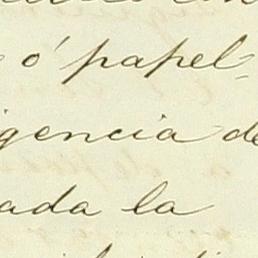 ó papel-
igencia de
ada la